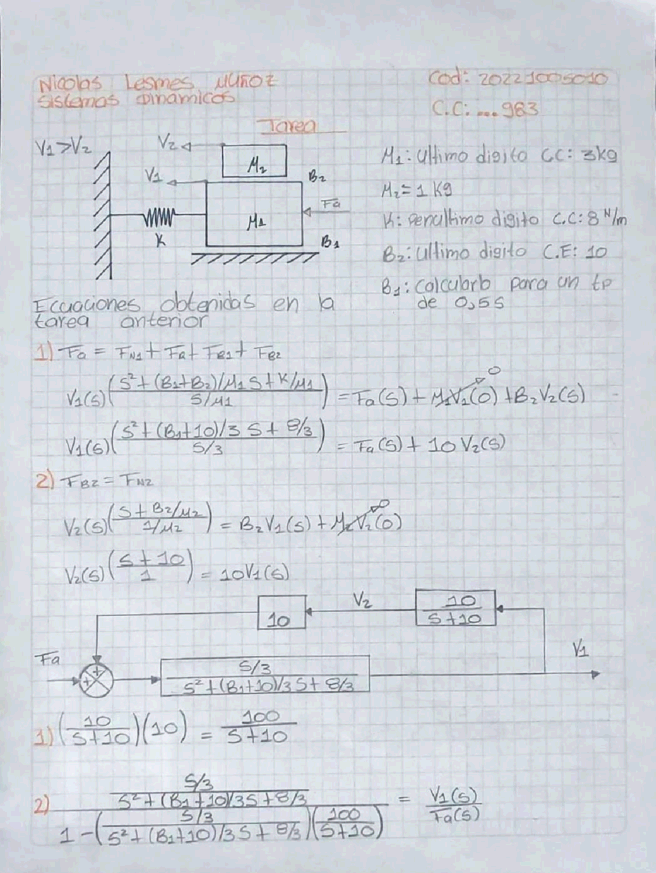 Nicolas Lesmes MUÑOZ Cod: 20221005010
Sistemas Dinamicos
C.C: ...983
Tarea
V₁>V₂
V₂
M₂
V₁
B₂
M₁
Fa
K
B₁
M₁: Ultimo digito CC: 3kg
M₂= 1 kg
K: Penultimo digito C.C: 8 N/m
B₂: Ultimo digito C.E: 10
B₁: Calcularlo para un tp
de 0,5s
Ecuaciones obtenidas en la
tarea anterior
1) Fa = FM1 + FK + FB1 + FB2
V₁(s)((S²+(B₁+B₂)/M₁ S+K/M₁)/(S/M₁)) = Fa(s) + M₁V₁(0) 0 + B₂V₂(s)
V₁(s)((S²+(B₁+10)/3 S + 8/3)/(S/3)) = Fa(s) + 10 V₂(s)
2) FB2 = FM2
V₂(s)((S+B₂/M₂)/(1/M₂)) = B₂V₁(s) + M₂V₂(0) 0
V₂(s)((S+10)/1) = 10V₁(s)
10
V₂
10/(S+10)
Fa
+
+
(S/3)/(S²+(B₁+10)/3 S+ 8/3)
V₁
1) (10/(S+10))(10) = 100/(S+10)
2) ((S/3)/(S²+(B₁+10)/3S+8/3))/(1-((S/3)/(S²+(B₁+10)/3 S+ 8/3))(100/(S+10))) = V₁(s)/Fa(s)